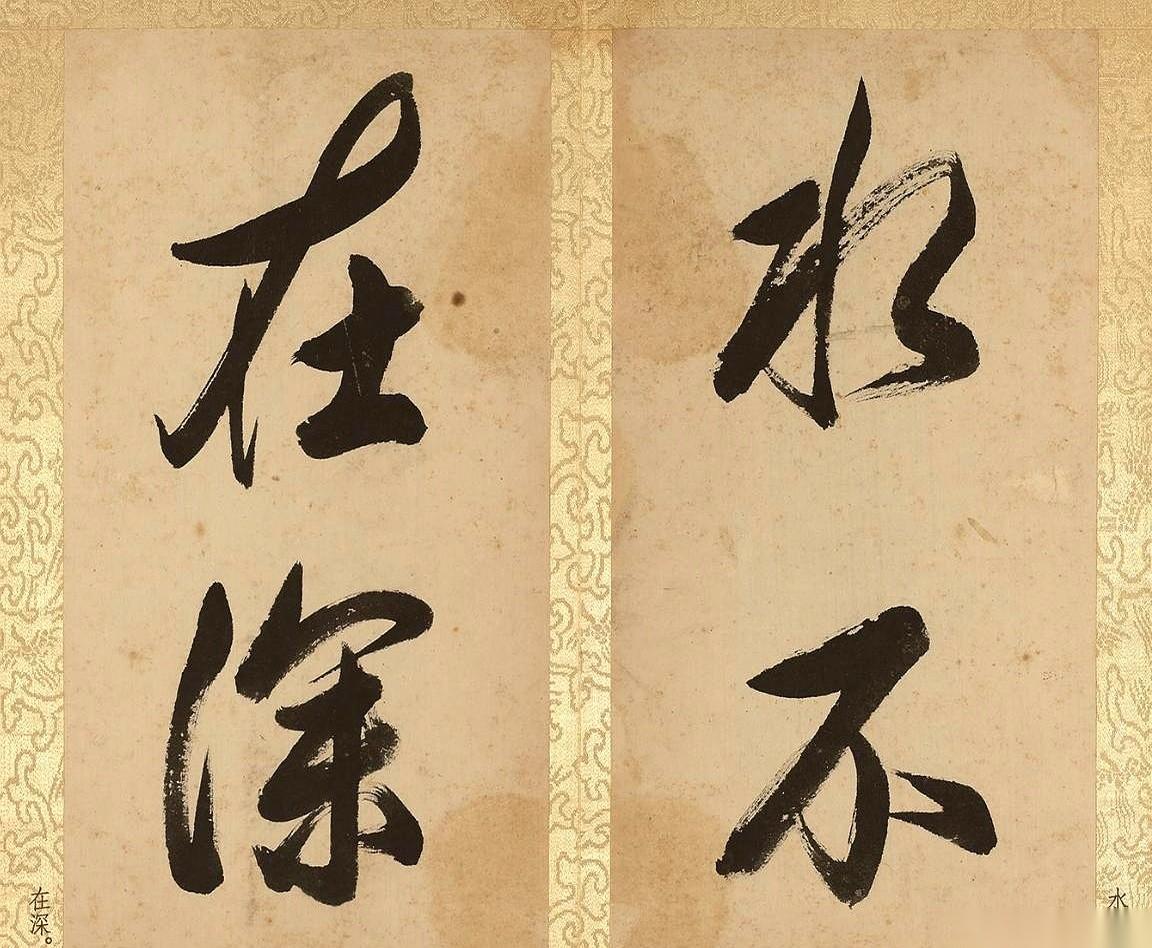 水不
在深
水
在深。